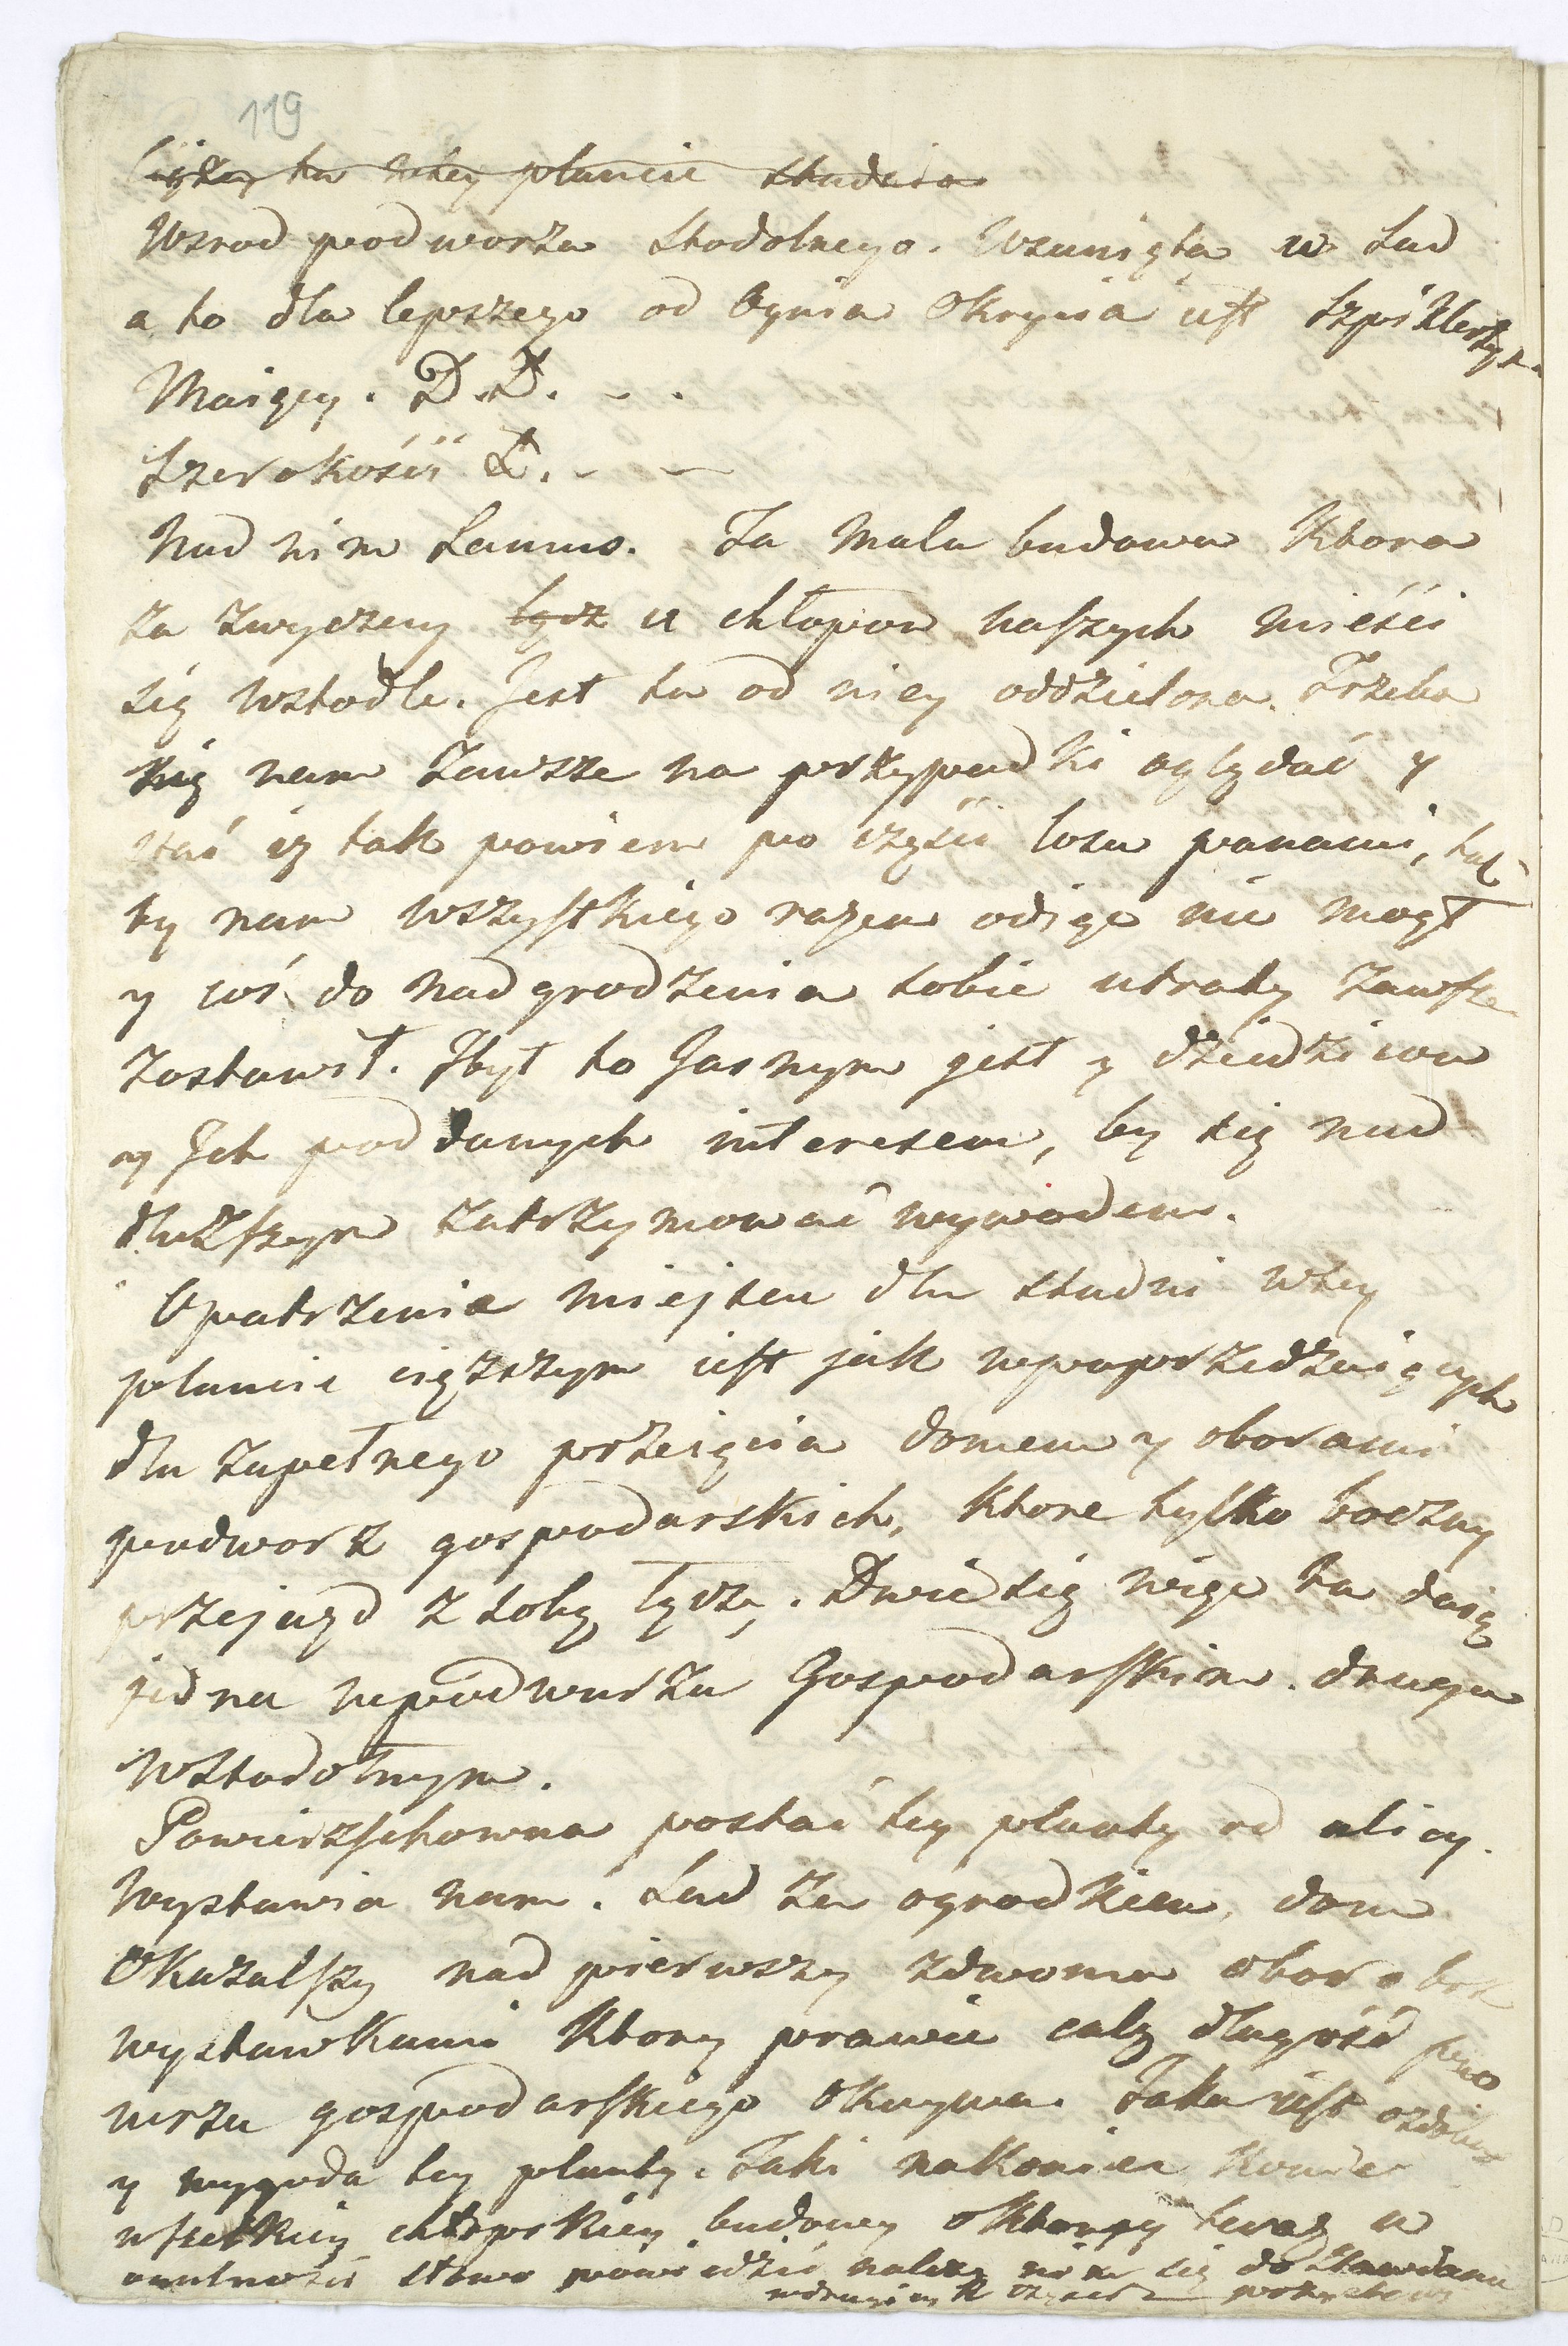 119
ta w tey plancie studnia
Wsrod podworza stodolnego. Wsunięta w sad
a to dla lepszego od ognia okrycia iest szpiklerzyk
Maiący. D.Ł. - .
Szerokości Ł. - -
Nad nim Lamus. Ta mała budowa ktora
za zwyczay tycz u chłopow naszych mieści
się wstodle. Jest tu od niey oddzielona. Trzeba
się nam zawsze na przypadki oglądać y
stać iż tak powiem po części losu panami, tak
by nam wszystkiego razem odiąć nie mogł
y coś do nadgrodzenia sobie utraty zawsze
zostawił. Zbyt to Jasnym jest y dziedzicow
y Ich poddanych interesem, by się nad
dłuższym zatrzymować wywodem.
Opatrzenie miejsca dla studni wtey
plancie cięższym iest jak wpoprzedzaiących
dla zupełnego przeięcia domem y oborami
podworz gospodarskich, ktore tylko boczny
przejazd z sobą łączy. Dwie się więc tu daią
jedna wpodwurzu Gospodarskim. druga
wstodolnym.
Powierzchowna postać tey planty od ulicy.
Wystawia nam. Sad za ogrodkiem, dom
Okazalszy nad pierwszy zdwoma obor obok
wystawkami ktory prawie całą długość podwo
wrza gospodarskiego okrywa. Taka iest ozdoba
y wygoda tey planty. Taki nakoniec
wszelkiey chłopskiey budowy o ktorey teraz w
słowo powiedzieć należy się do